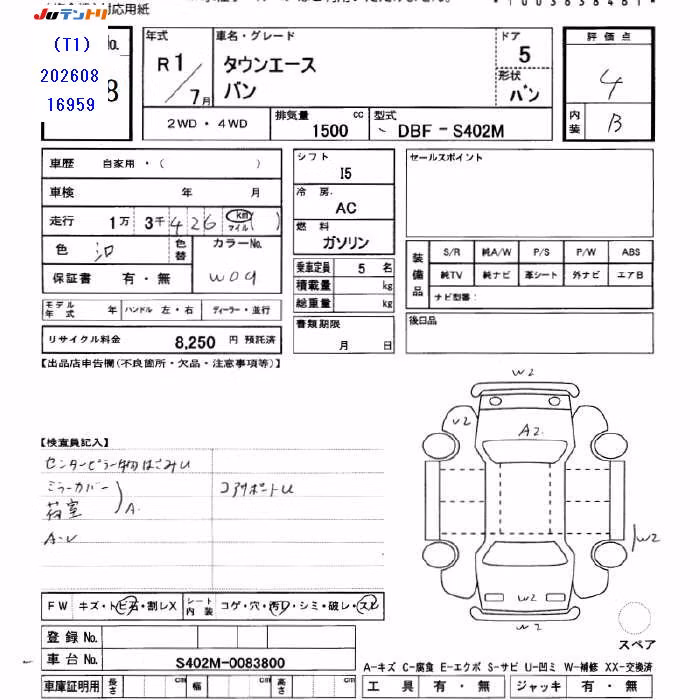 対応用紙
Juテントリ
(T1)
202608
16959
No.
8
年式
R1/7月
車名・グレード
タウンエース
バン
ドア
5
形状
バン
評価点
4
内装
B
2WD・4WD
排気量
1500 cc
型式
DBF-S402M
車歴 自家用・( )
車検 年 月
走行 1万 3千 426 km マイル ( )
色 シロ 色替 カラーNo. W09
保証書 有・無
モデル年式 年 ハンドル 左・右 ディーラー・並行
リサイクル料金 8,250 円 預託済
シフト
I5
冷房
AC
燃料
ガソリン
乗車定員 5 名
積載量 kg
総重量 kg
書類期限
月 日
セールスポイント
装備品
S/R 純A/W P/S P/W ABS
純TV 純ナビ 革シート 外ナビ エアB
ナビ型番:
後日品
【出品店申告欄(不良箇所・欠品・注意事項等)】
【検査員記入】
センターピラー物はさみU
ミラーカバー
荷室
A.
A-U
コアサポートU
W2
V2
A2.
W2
W2
W2
FW キズ・トビ石・割レX シート内装 コゲ・穴・汚レ・シミ・破レ・スレ
登録No.
車台No. S402M-0083800
車庫証明用 長さ cm 幅 cm 高さ cm
スペア
A-キズ C-腐食 E-エクボ S-サビ U-凹ミ W-補修 XX-交換済
工具 有・無 ジャッキ 有・無